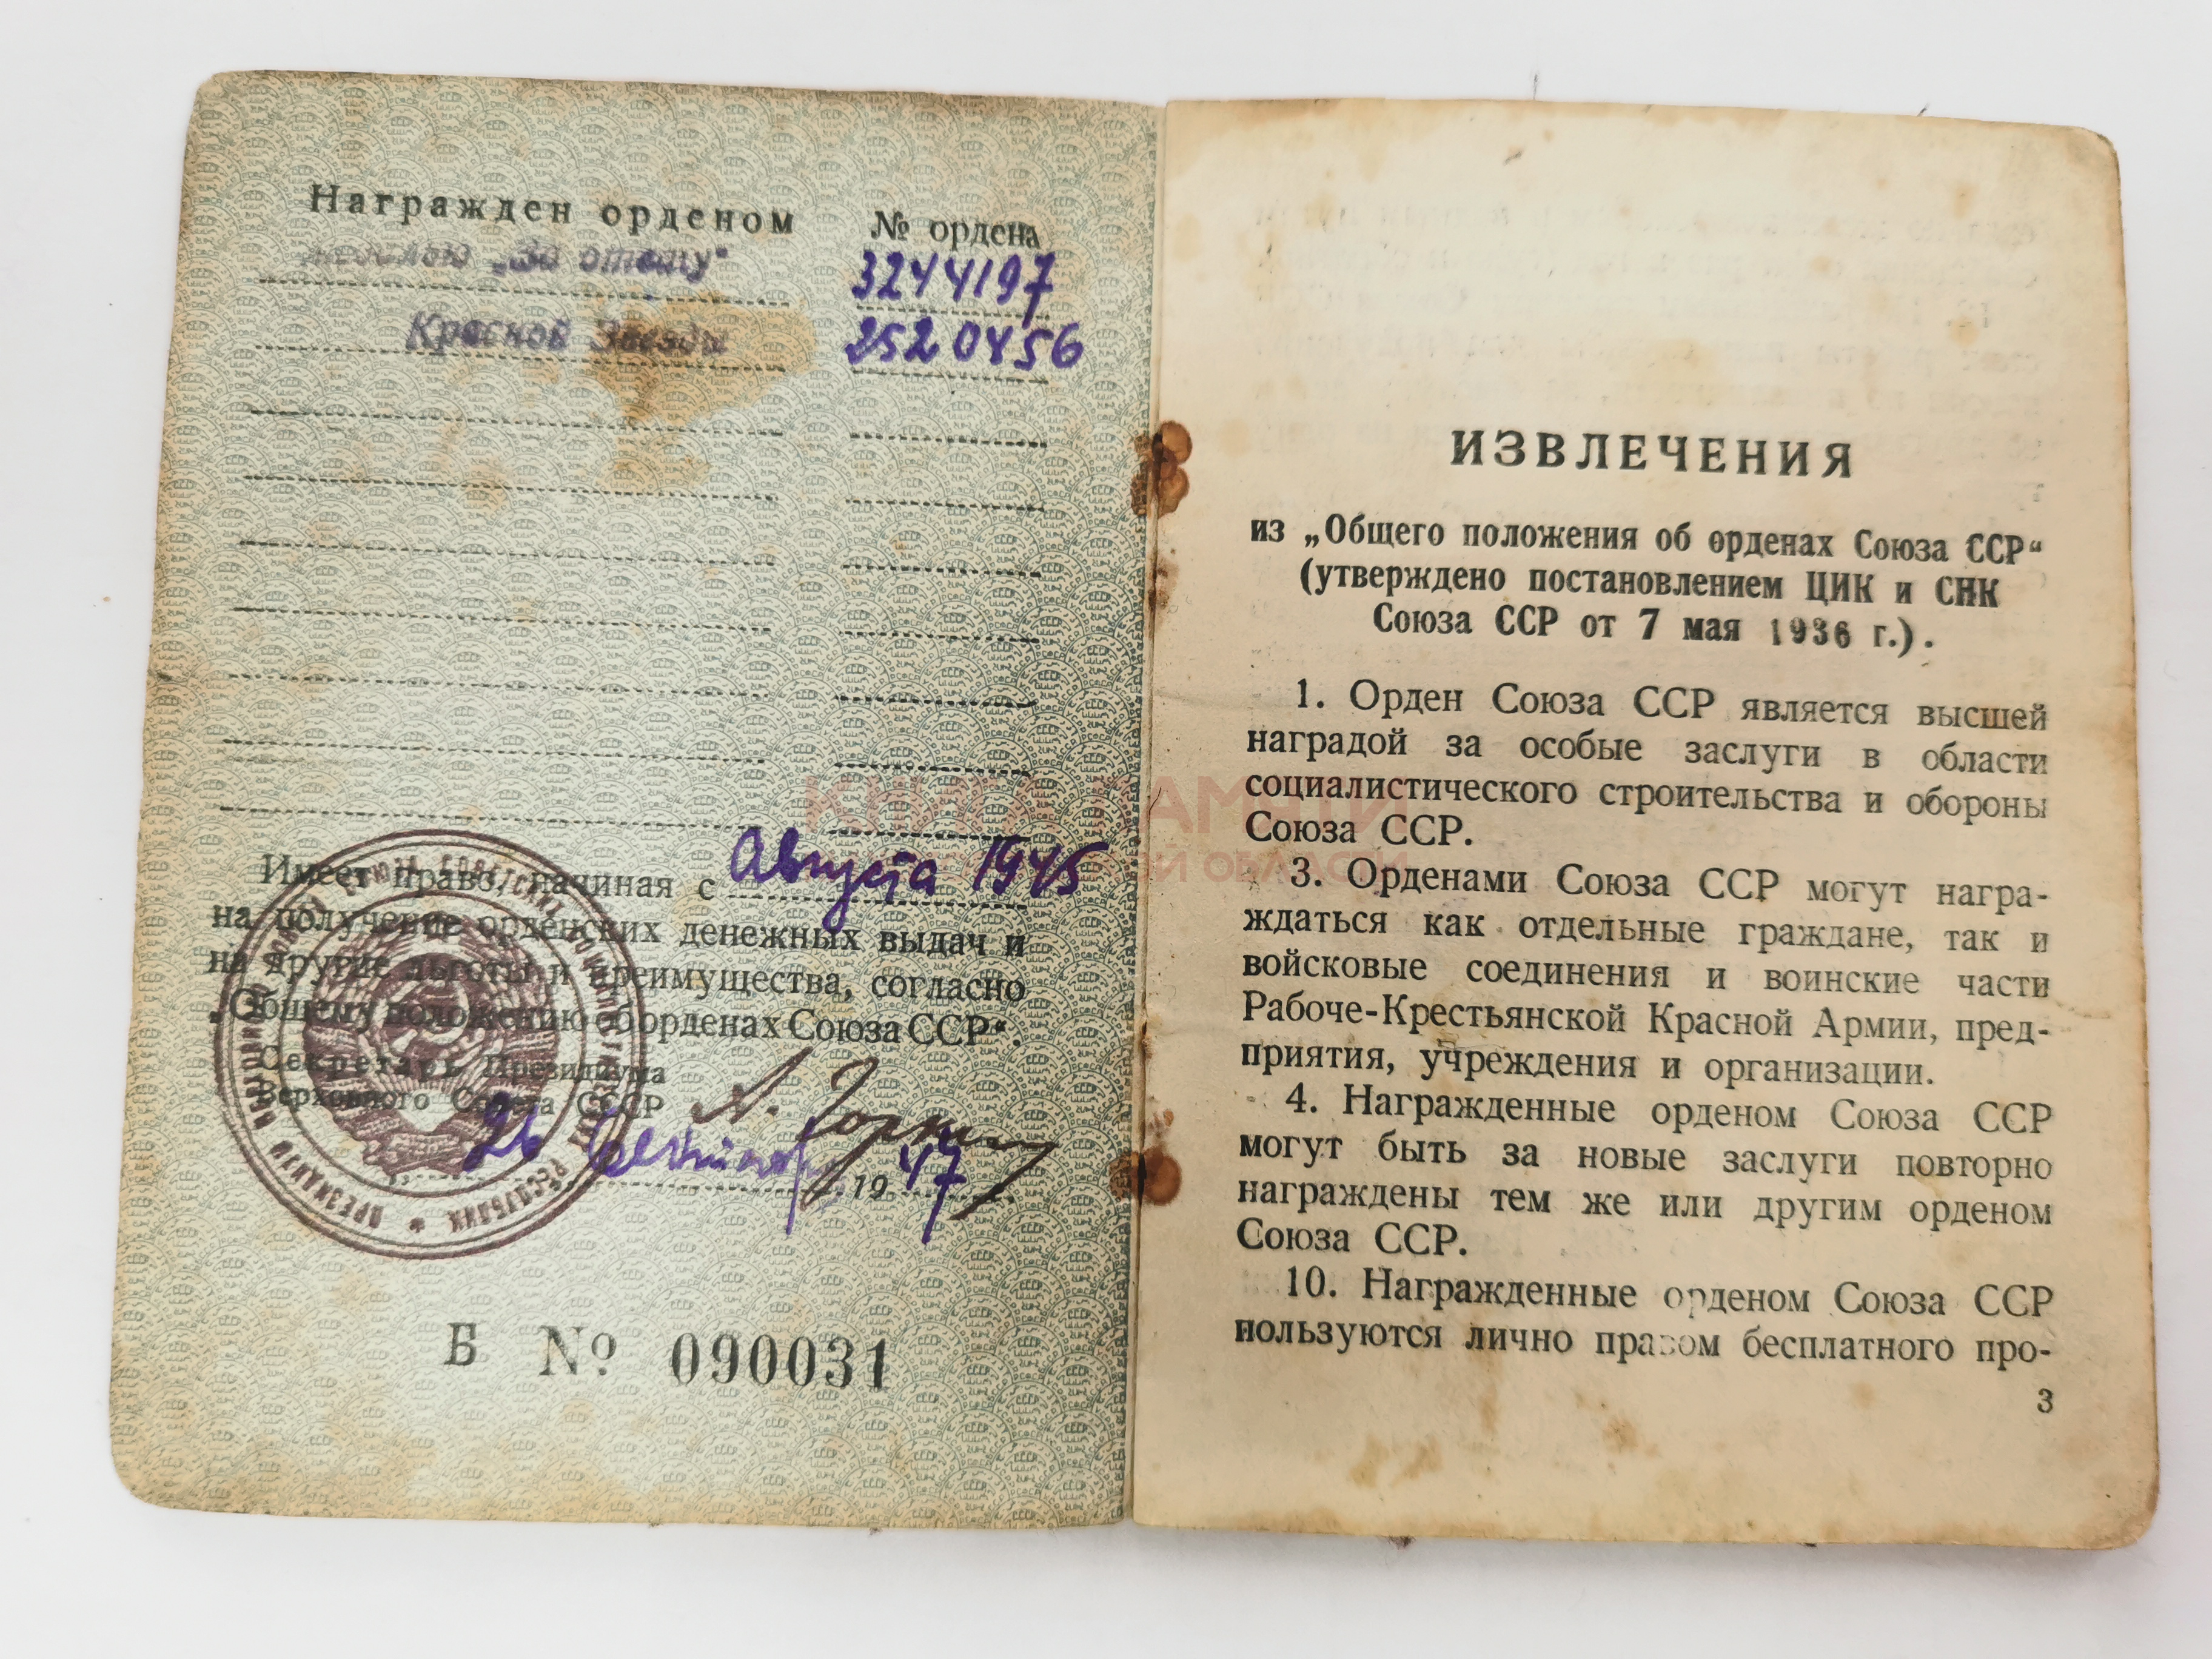 Награжден орденом № ордена
„За отвагу" 3244197
Красной Звезды 2520456
Имеет право, начиная с Августа 1945
на получение орденских денежных выдач и
на другие льготы и преимущества, согласно
„Общему положению об орденах Союза ССР".
Секретарь Президиума
Верховного Совета СССР
А. Горкин
26 Сентября 1947
Б № 090031
ИЗВЛЕЧЕНИЯ
из „Общего положения об орденах Союза ССР"
(утверждено постановлением ЦИК и СНК
Союза ССР от 7 мая 1936 г.).
1. Орден Союза ССР является высшей
наградой за особые заслуги в области
социалистического строительства и обороны
Союза ССР.
3. Орденами Союза ССР могут награ-
ждаться как отдельные граждане, так и
войсковые соединения и воинские части
Рабоче-Крестьянской Красной Армии, пред-
приятия, учреждения и организации.
4. Награжденные орденом Союза ССР
могут быть за новые заслуги повторно
награждены тем же или другим орденом
Союза ССР.
10. Награжденные орденом Союза ССР
пользуются лично правом бесплатного про-
3
КНИГА ПАМЯТИ
ОБЛАСТИ